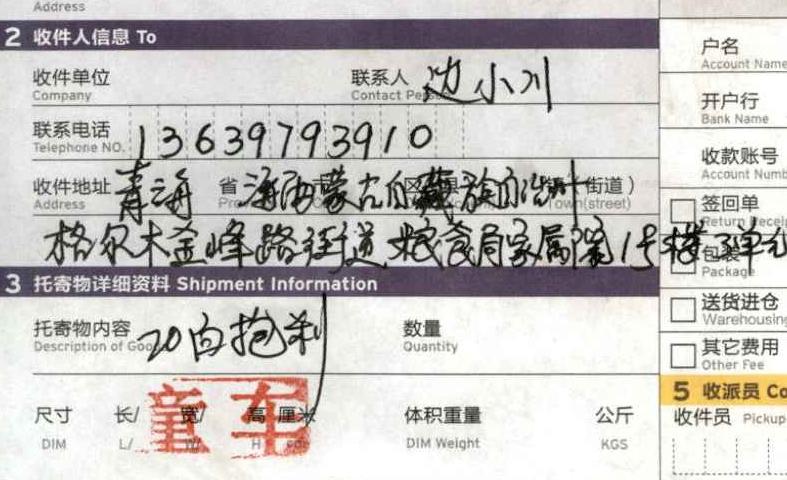 Address
2 收件人信息 To
收件单位
Company
联系人 边小川
Contact Person
联系电话 13639793910
Telephone NO.
收件地址 青海 省 海西蒙古自藏族自治州 街道）
Address
Town(street)
格尔木金峰路街道粮食局家属院1号楼3单元
3 托寄物详细资料 Shipment Information
托寄物内容 20白抱刹
Description of Goods
数量
Quantity
尺寸 长/ 宽/ 高 厘米
DIM L/ W/ H
童车
体积重量 公斤
DIM Weight KGS
户名
Account Name
开户行
Bank Name
收款账号
Account Numb
签回单
Return Receip
包装
Package
送货进仓
Warehousing
其它费用
Other Fee
5 收派员 Co
收件员 Pickup